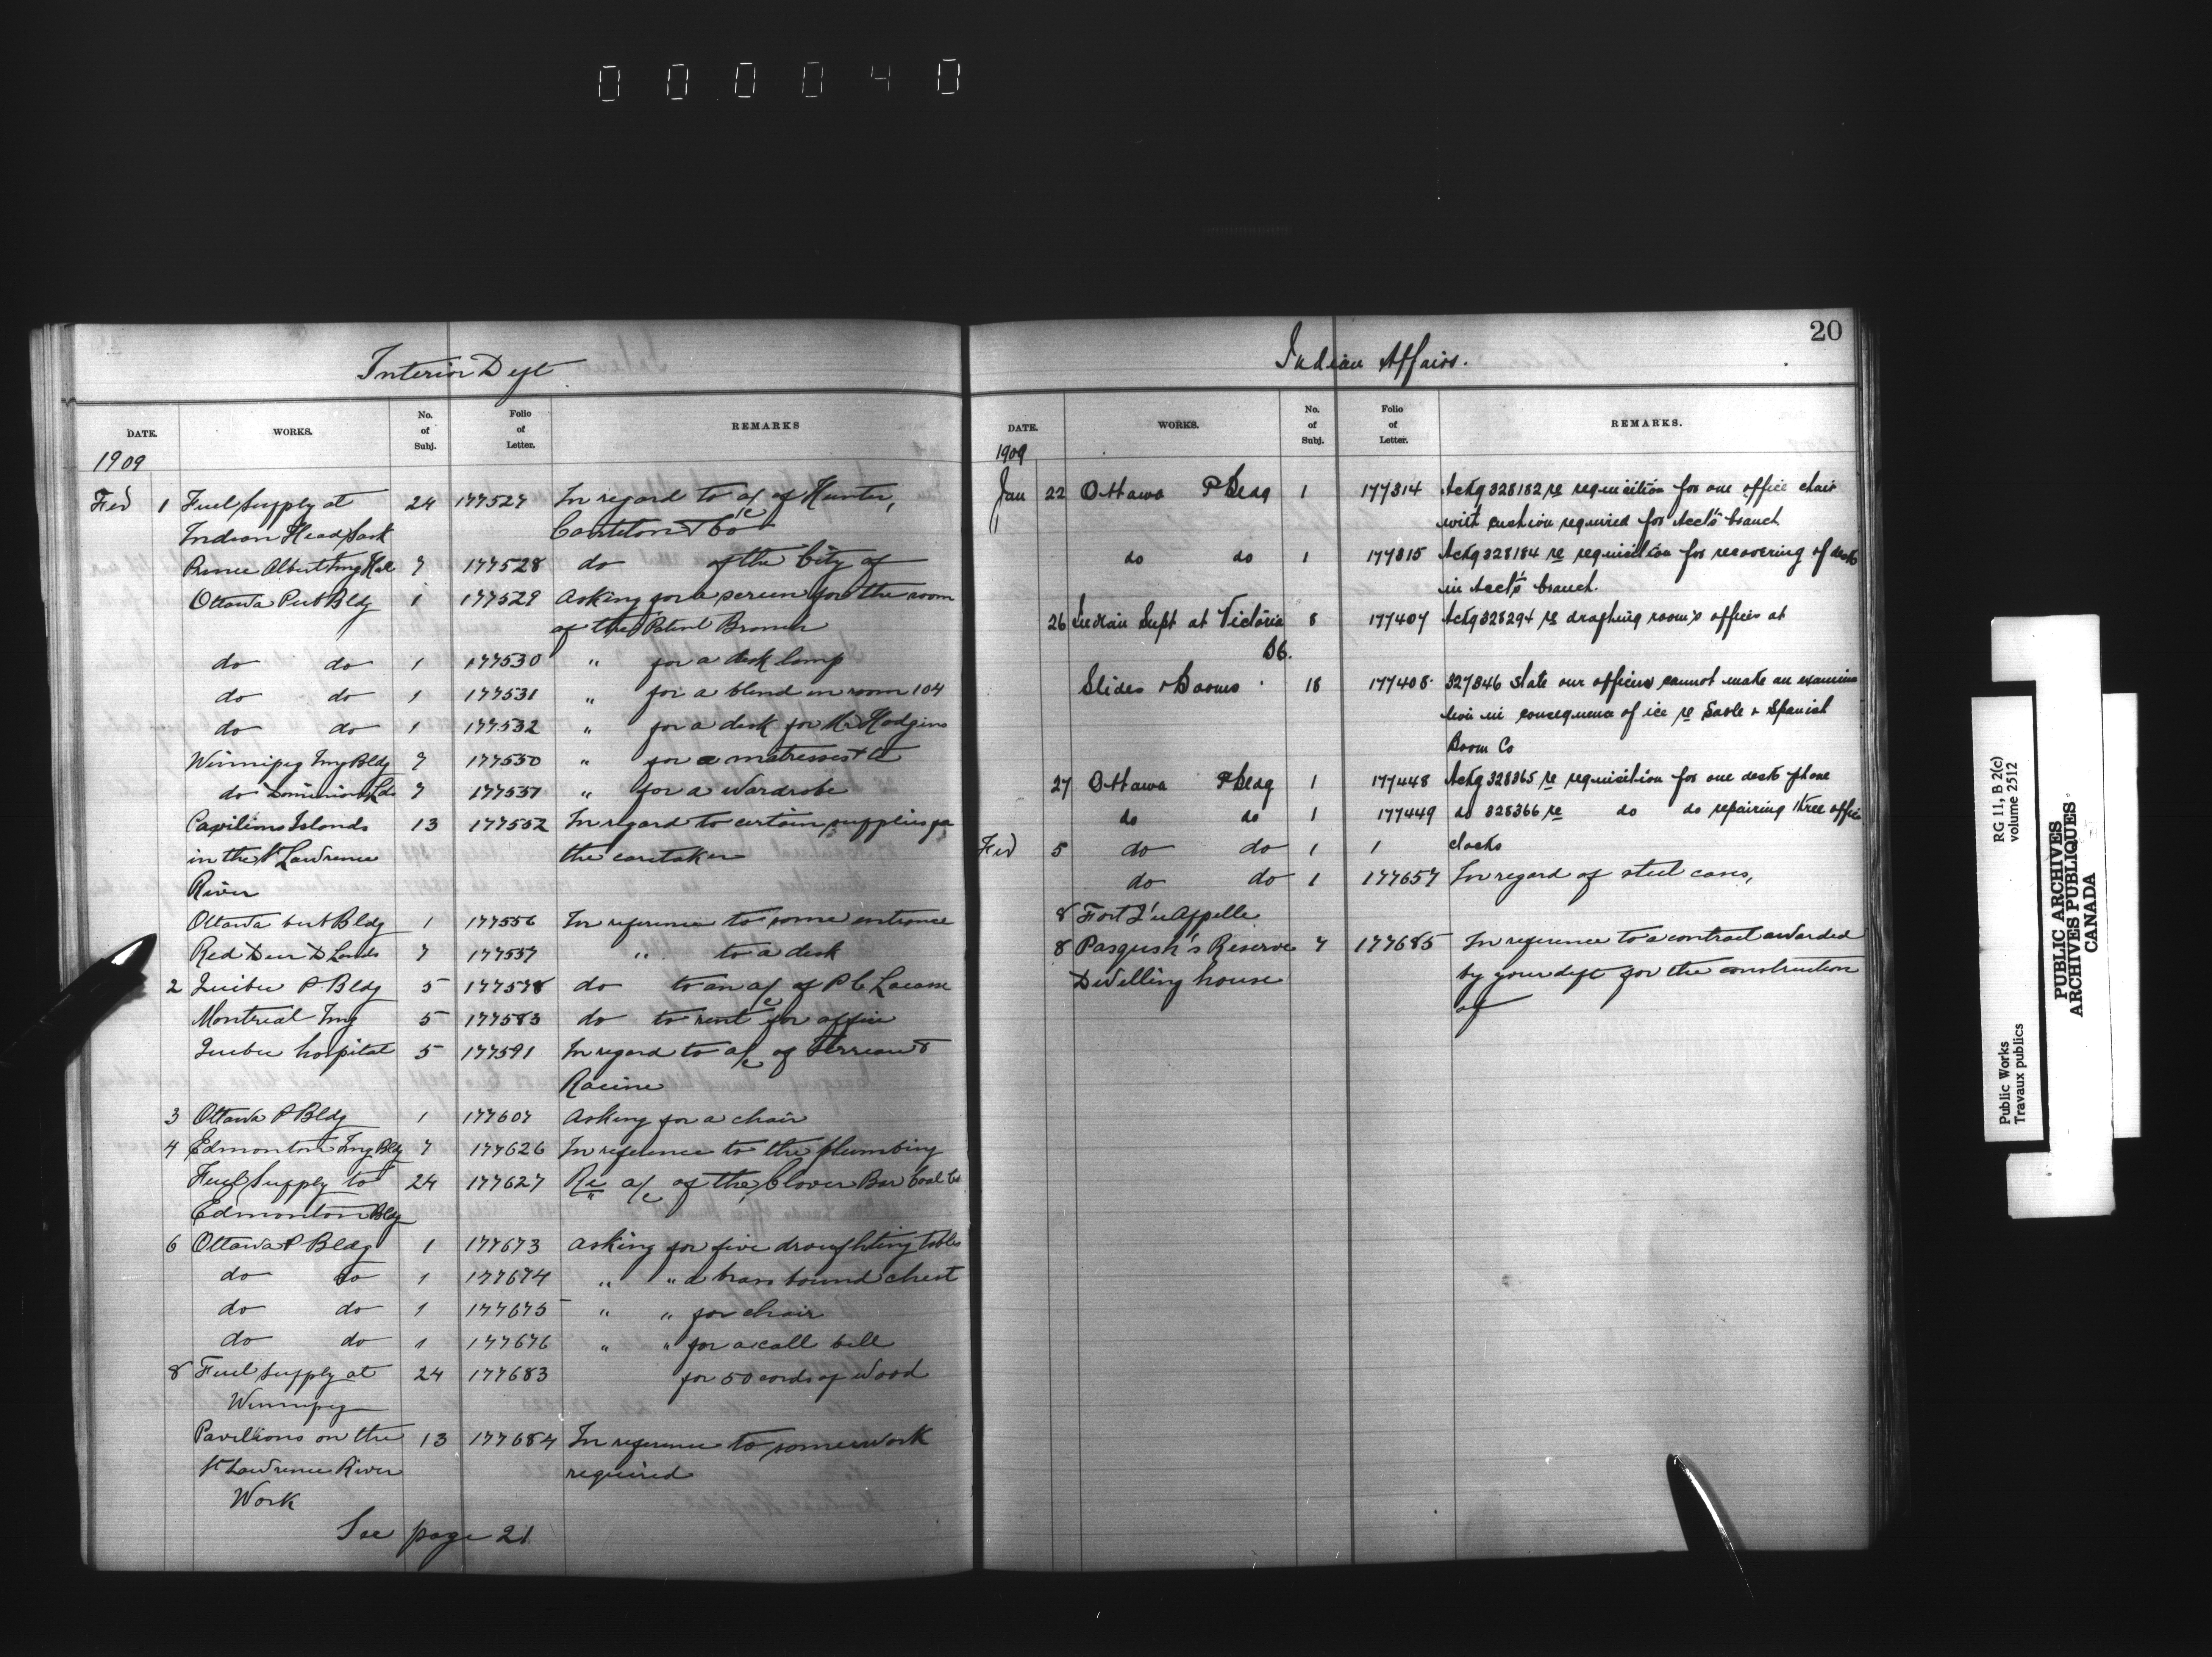 000040
Interior Dept
DATE. WORKS. No. of Subj. Folio of Letter. REMARKS
1909
Feb 1 Fuel Supply at 24 177527 In regard to a/c of Hunter,
Indian Head Sask & Co
Prince Albert Img Hal 7 177528 do of the City of
Ottawa Pub Bldg 1 177529 Asking for a screen for the room
of the Patent Branch
do do 1 177530 " for a desk lamp
do do 1 177531 " for a blind in room 104
do do 1 177532 " for a desk for Mr Hodgins
Winnipeg Img Bldg 7 177530 " for a matresses &
do Dominion Lds 7 177537 " for a Wardrobe
Pavilions Islands 13 177552 In regard to certain supplies for
in the St Lawrence the caretaker
River
Ottawa Bldg 1 177556 In reference to some entrance
Red Deer D Lands 7 177557 " to a desk
2 Quebec P. Bldg 5 177578 do to an a/c of P C
Montreal Img 5 177583 do to rent for office
Quebec hospital 5 177591 In regard to a/c of Terreau &
Racine
3 Ottawa P Bldg 1 177607 Asking for a chair
4 Edmonton Img Bldg 7 177626 In reference to the plumbing
Fuel Supply to 24 177627 Re a/c of the Clover Bar Coal Co
Edmonton Bldg
6 Ottawa P Bldg 1 177673 Asking for five draughting tables
do do 1 177674 " " a brass bound chest
do do 1 177675 " " for chair
do do 1 177676 " " for a call bell
8 Fuel Supply at 24 177683 for 50 cords of Wood
Winnipeg
Pavilions on the 13 177684 In reference to some work
St Lawrence River required
Work
See page 21
20
Indian Affairs.
DATE. WORKS. No. of Subj. Folio of Letter. REMARKS.
1909
Jan 22 Ottawa P Bldg 1 177314 Ackg 328182 re requisition for one office chair
with cushion required for Acct's branch
do do 1 177315 Ackg 328184 re requisition for recovering of desk
in Acct's branch.
26 Indian Supt at Victoria 8 177407 Ackg 328294 re drafting rooms offices at
BC.
Slides & Booms 18 177408 327846 State our officers cannot make an examina
tion in consequence of ice re Sable & Spanish
Boom Co
27 Ottawa P Bldg 1 177448 Ackg 328365 re requisition for one desk phone
do do 1 177449 do 328366 re do do repairing three office
Feb 5 do do 1 1 clocks
do do 1 177657 In regard of steel cases,
8 Fort Qu'Appelle
8 Pasqush's Reserve 7 177685 In reference to a contract awarded
Dwelling house by your dept for the construction
of
Public Works
Travaux publics
RG 11, B 2(c)
volume 2512
PUBLIC ARCHIVES
ARCHIVES PUBLIQUES
CANADA